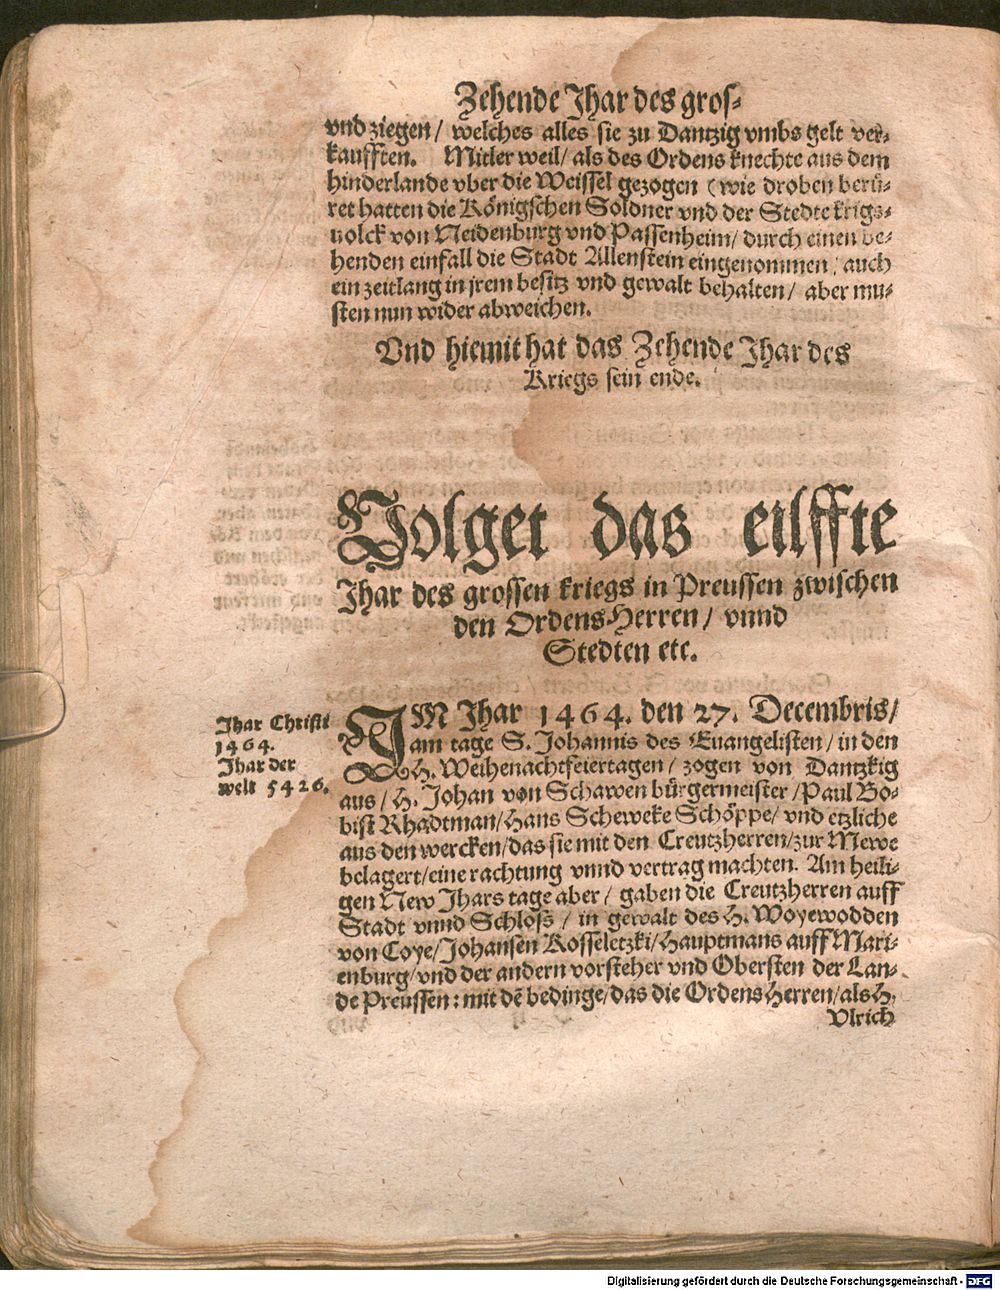 Zehende Jhar des gros-
vnd ziegen / welches alles sie zu Dantzig vmbs gelt ver-
kaufften. Mitler weil / als des Ordens knechte aus dem
hinderlande vber die Weissel gezogen (wie droben berü-
ret hatten die Königschen Soldner vnd der Stedte krigs-
uolck von Neidenburg vnd Passenheim / durch einen be-
henden einfall die Stadt Allenstein eingenommen / auch
ein zeitlang in jrem besitz vnd gewalt behalten / aber mu-
sten nun wider abweichen.
Vnd hiemit hat das Zehende Jhar des
Kriegs sein ende.
Volget das eilffte
Jhar des grossen kriegs in Preussen zwischen
den Ordens Herren / vnnd
Stedten etc.
Jhar Christi
1464.
Jhar der
welt 5426.
IM Jhar 1464. den 27. Decembris /
am tage S. Johannis des Euangelisten / in den
H. Weihenachtfeiertagen / zogen von Dantzkig
aus / H. Johan von Schawen bürgermeister / Paul Bo-
bist Rhadtman / Hans Scheweke Schöppe / vnd etzliche
aus den wercken / das sie mit den Creutzherren / zur Mewe
belagert / eine rachtung vnnd vertrag machten. Am heili-
gen New Jhars tage aber / gaben die Creutzherren auff
Stadt vnnd Schloss / in gewalt des H. Woyewodden
von Coye / Johansen Kosseletzki / Hauptmans auff Mari-
enburg / vnd der andern vorsteher vnd Obersten der Lan-
de Preussen : mit dē bedinge / das die Ordens Herren / als H.
Vlrich
Digitalisierung gefördert durch die Deutsche Forschungsgemeinschaft - DFG